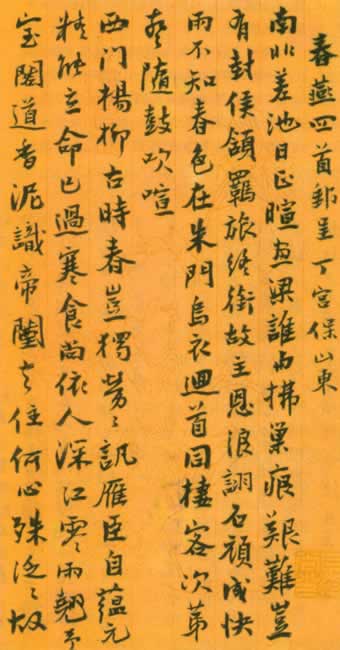 春燕四首郵呈丁宮保山東
南北差池日正暄畫梁誰為拂巢痕艱難豈
有封侯頷羈旅終銜故主恩浪詡石頑成快
雨不知春色在朱門烏衣迴首同棲客次第
隨鼓吹喧
西門楊柳古時春豈獨勞勞訊雁臣自蘊元
精能立命已過寒食尚依人深江零雨翹予
宝閣道香泥識帝闉去住何心殊泛泛故